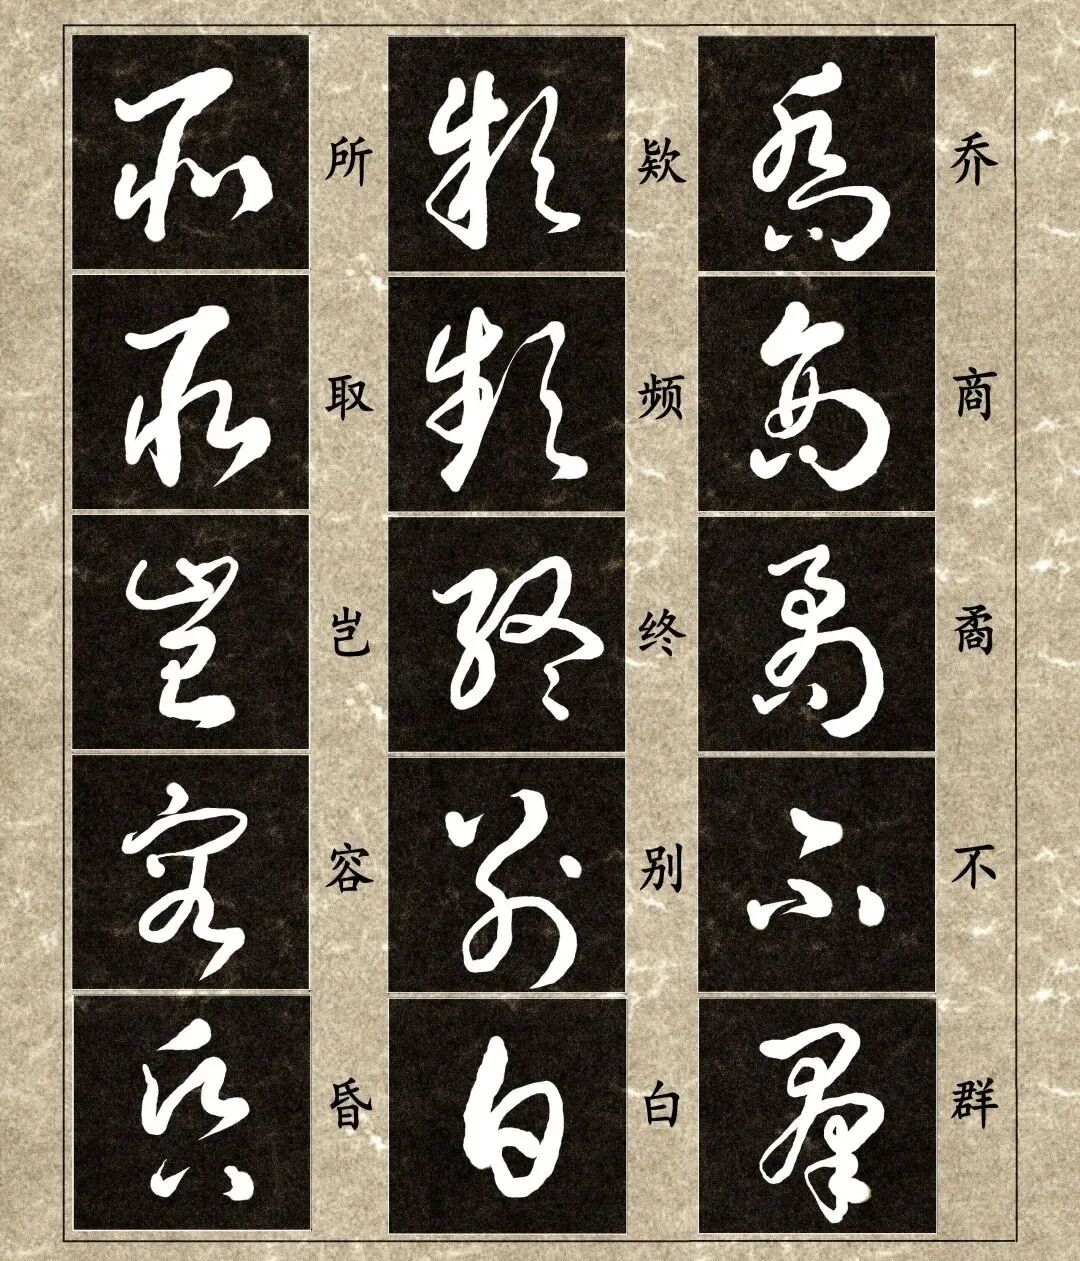 乔商矞不群
欵频终别白
所取岂容昏